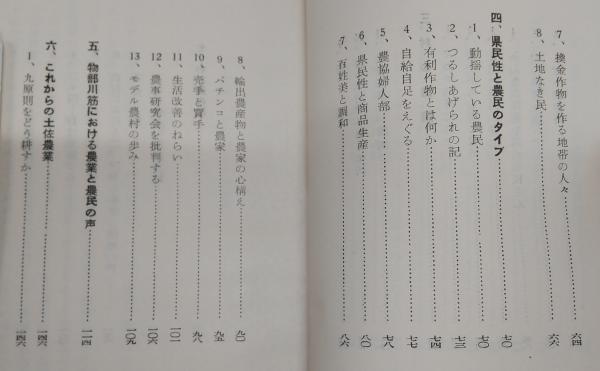 7、換金作物を作る地帯の人々……六四
8、土地なき民……六六
四、県民性と農民のタイプ……七〇
1、動揺している農民……七〇
2、つるしあげられの記……七三
3、有利作物とは何か……七四
4、自給自足をえぐる……七七
5、農協婦人部……七八
6、県民性と商品生産……八〇
7、百姓美と調和……八六
8、輸出農産物と農家の心構え……九〇
9、パチンコと農家……九五
10、売手と買手……九八
11、生活改善のねらい……一〇一
12、農事研究会を批判する……一〇六
13、モデル農村の歩み……一〇九
五、物部川筋における農業と農民の声……一一四
六、これからの土佐農業……一四六
1、九原則をどう耕すか……一四六